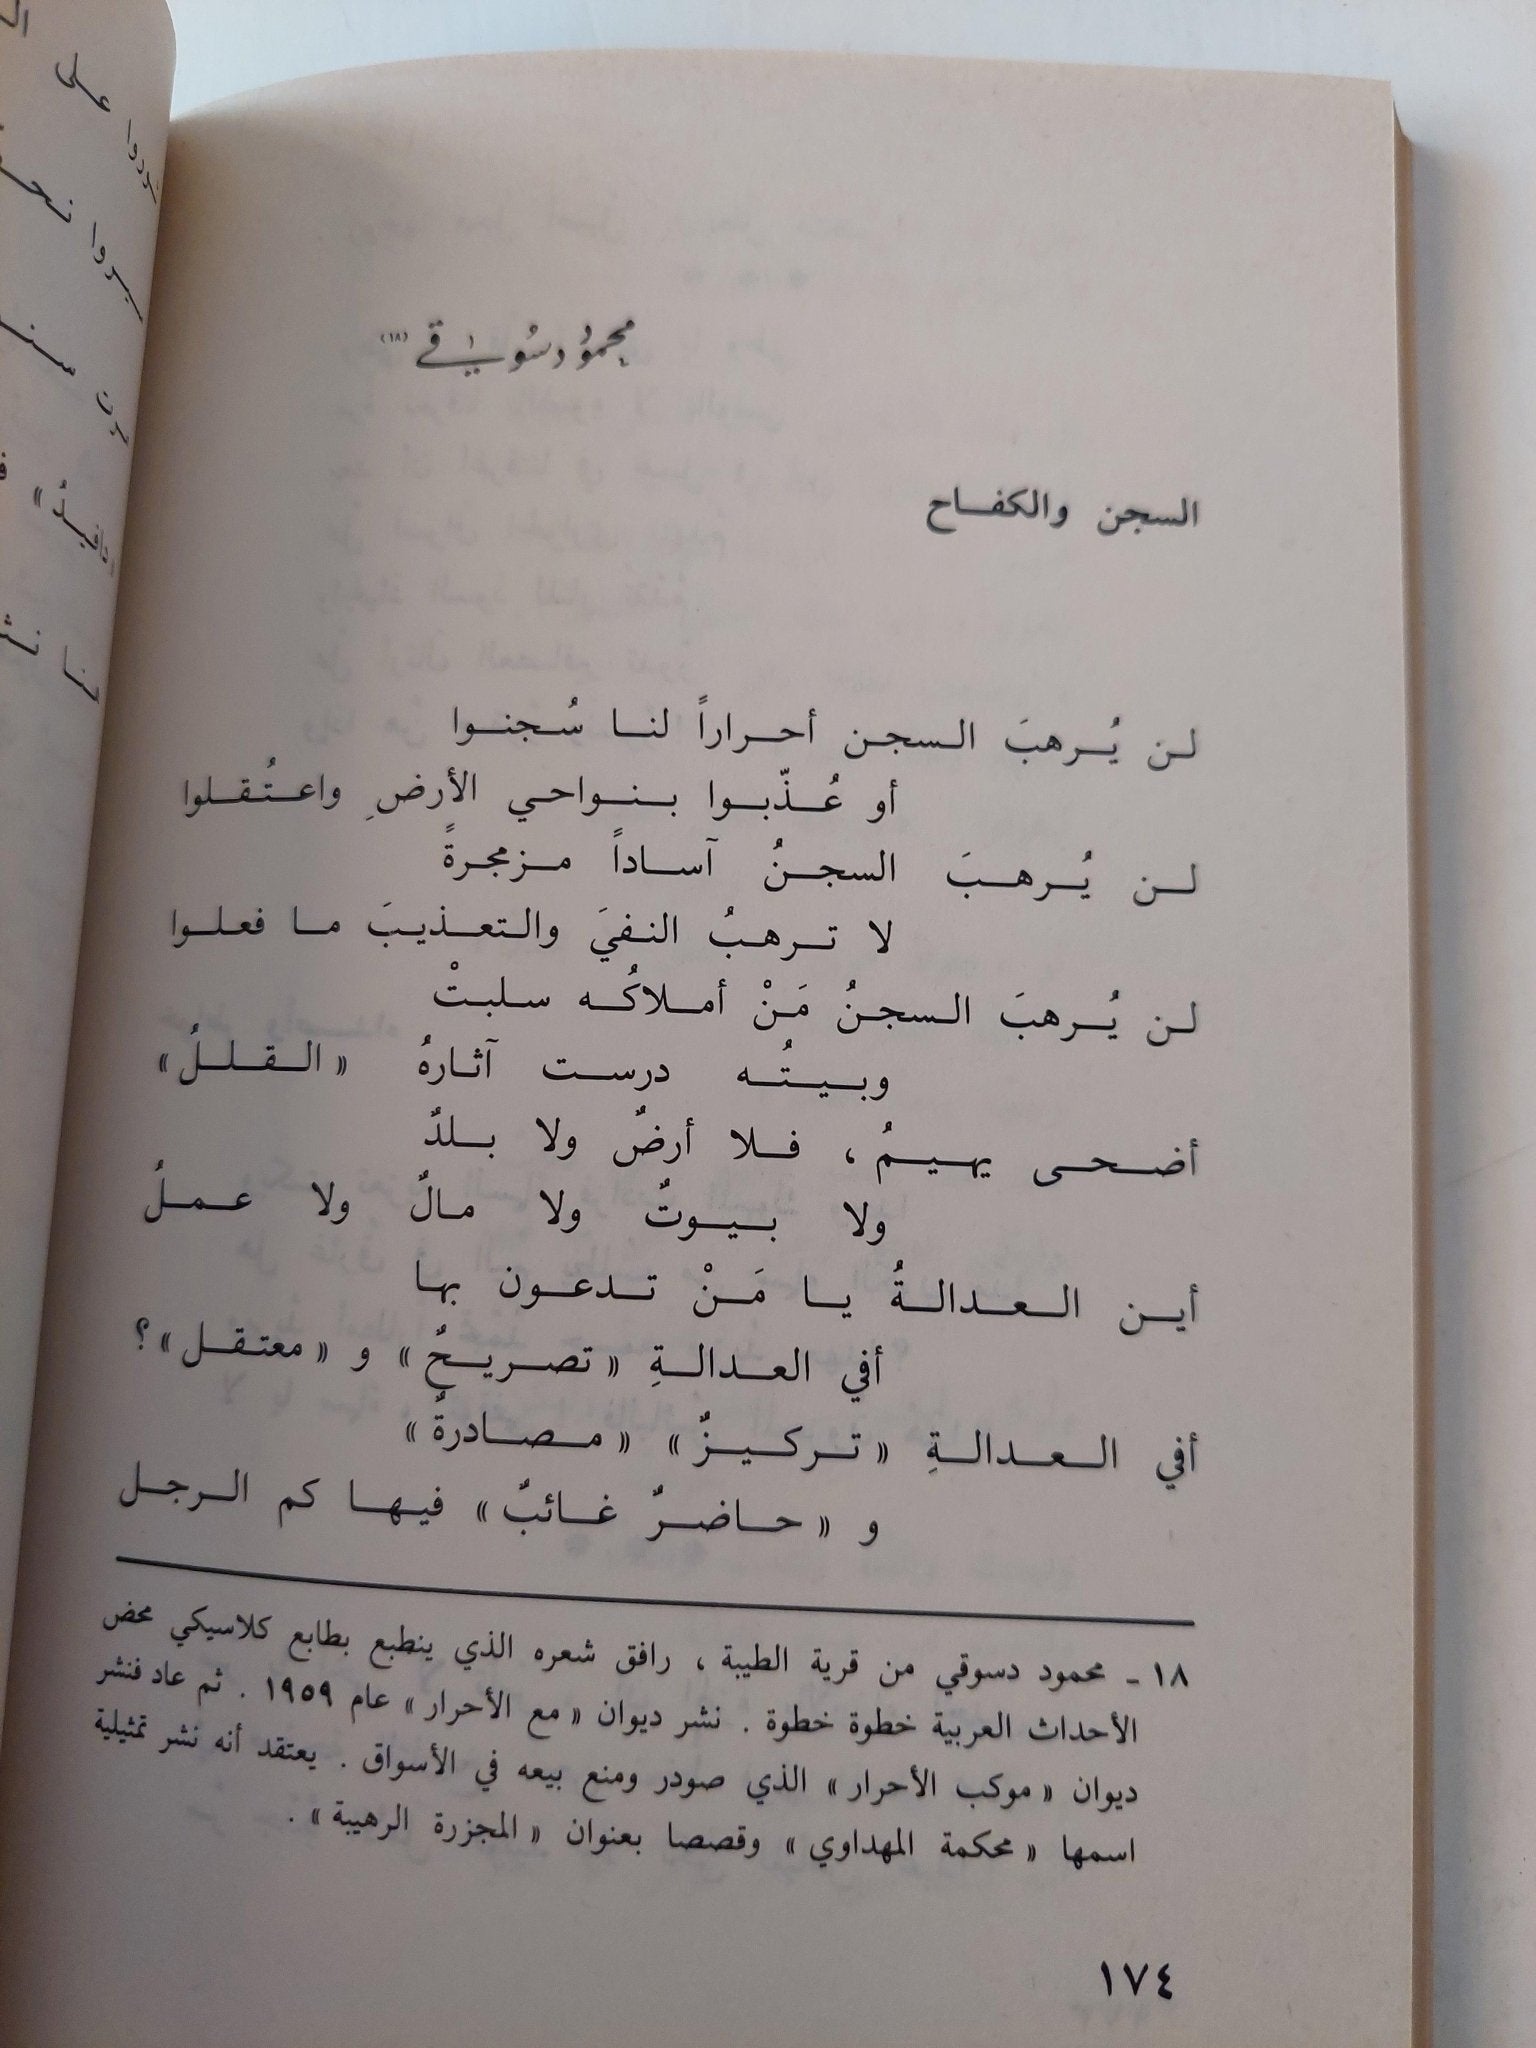 محمُود دسُوقي (١٨)
السجن والكفاح
لن يُرهبَ السجن أحراراً لنا سُجنوا
أو عُذّبوا بنواحي الأرضِ واعتُقلوا
لن يُرهبَ السجنُ آساداً مزمجرةً
لا ترهبُ النفيَ والتعذيبَ ما فعلوا
لن يُرهبَ السجنُ مَنْ أملاكُه سلبتْ
وبيتُه درست آثارهُ « القللُ »
أضحى يهيمُ ، فلا أرضٌ ولا بلدٌ
ولا بيوتٌ ولا مالٌ ولا عملُ
أين العدالةُ يا مَنْ تدعون بها
أفي العدالةِ « تصريحٌ » و « معتقل » ؟
أفي العدالةِ « تركيزٌ » « مصادرةٌ »
و « حاضرٌ غائبٌ » فيها كم الرجل
١٨ - محمود دسوقي من قرية الطيبة ، رافق شعره الذي ينطبع بطابع كلاسيكي محض
الأحداث العربية خطوة خطوة . نشر ديوان « مع الأحرار » عام ١٩٥٩ . ثم عاد فنشر
ديوان « موكب الأحرار » الذي صودر ومنع بيعه في الأسواق . يعتقد أنه نشر تمثيلية
اسمها « محكمة المهداوي » وقصصا بعنوان « المجزرة الرهيبة » .
١٧٤